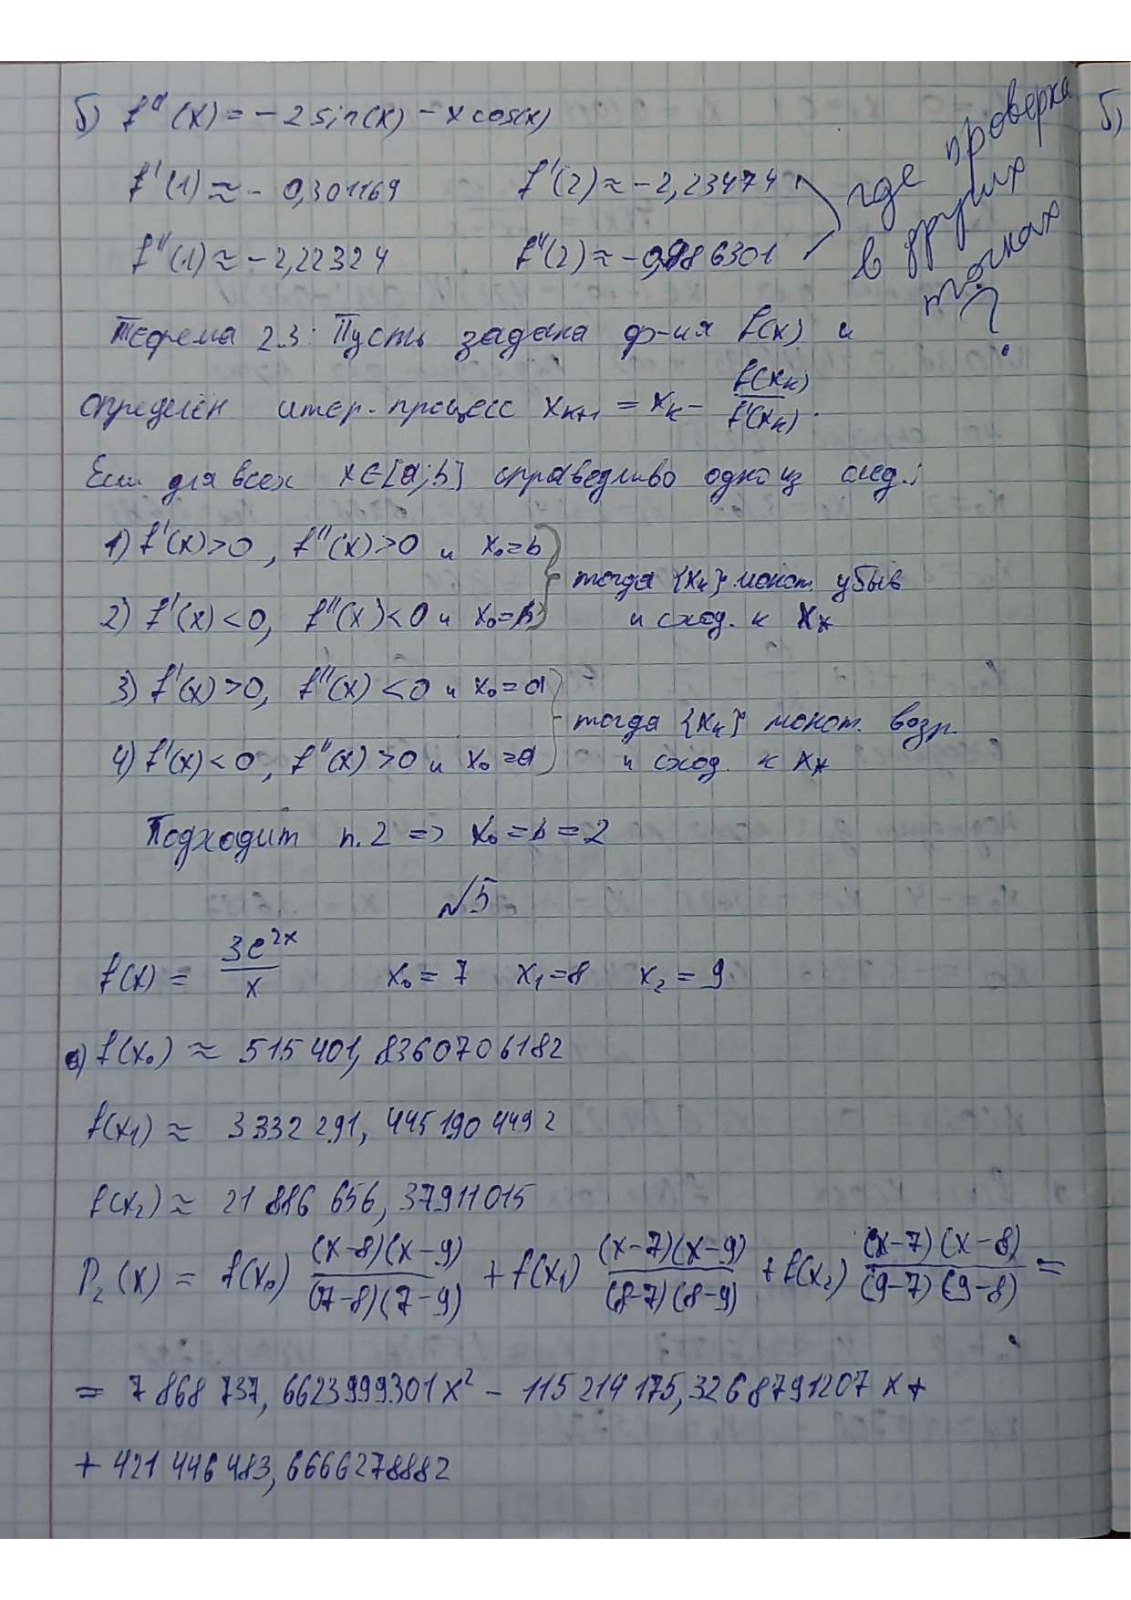 б) f''(x) = -2 sin(x) - x cos(x)
f'(1) ≈ - 0,301169 f'(2) ≈ -2,23474
f''(1) ≈ -2,22324 f''(2) ≈ -0,986301
где проверка
в других
точках
?
Теорема 2.3: Пусть задана ф-ия f(x) и
определён итер. процесс x_{k+1} = x_k - f(x_k)/f'(x_k).
Если для всех x∈[a;b] справедливо одно из след.:
1) f'(x)>0, f''(x)>0 и x₀=b
2) f'(x)<0, f''(x)<0 и x₀=b
тогда {x_k} монот. убыв
и сход. к x_*
3) f'(x)>0, f''(x)<0 и x₀=a
4) f'(x)<0, f''(x)>0 и x₀=a
тогда {x_k} монот. возр.
и сход. к x_*
Подходит п.2 => x₀=b=2
№5
f(x) = 3e^{2x}/x x₀ = 7 x₁=8 x₂ = 9
а) f(x₀) ≈ 515 401, 8360706182
f(x₁) ≈ 3 332 291, 445190 4492
f(x₂) ≈ 21 886 656, 37911015
P₂(x) = f(x₀) (x-8)(x-9)/(7-8)(7-9) + f(x₁) (x-7)(x-9)/(8-7)(8-9) + f(x₂) (x-7)(x-8)/(9-7)(9-8) =
= 7 868 737, 6623999301x² - 115 214 175, 3268791207 x +
+ 421 446 483, 6666278882
б)